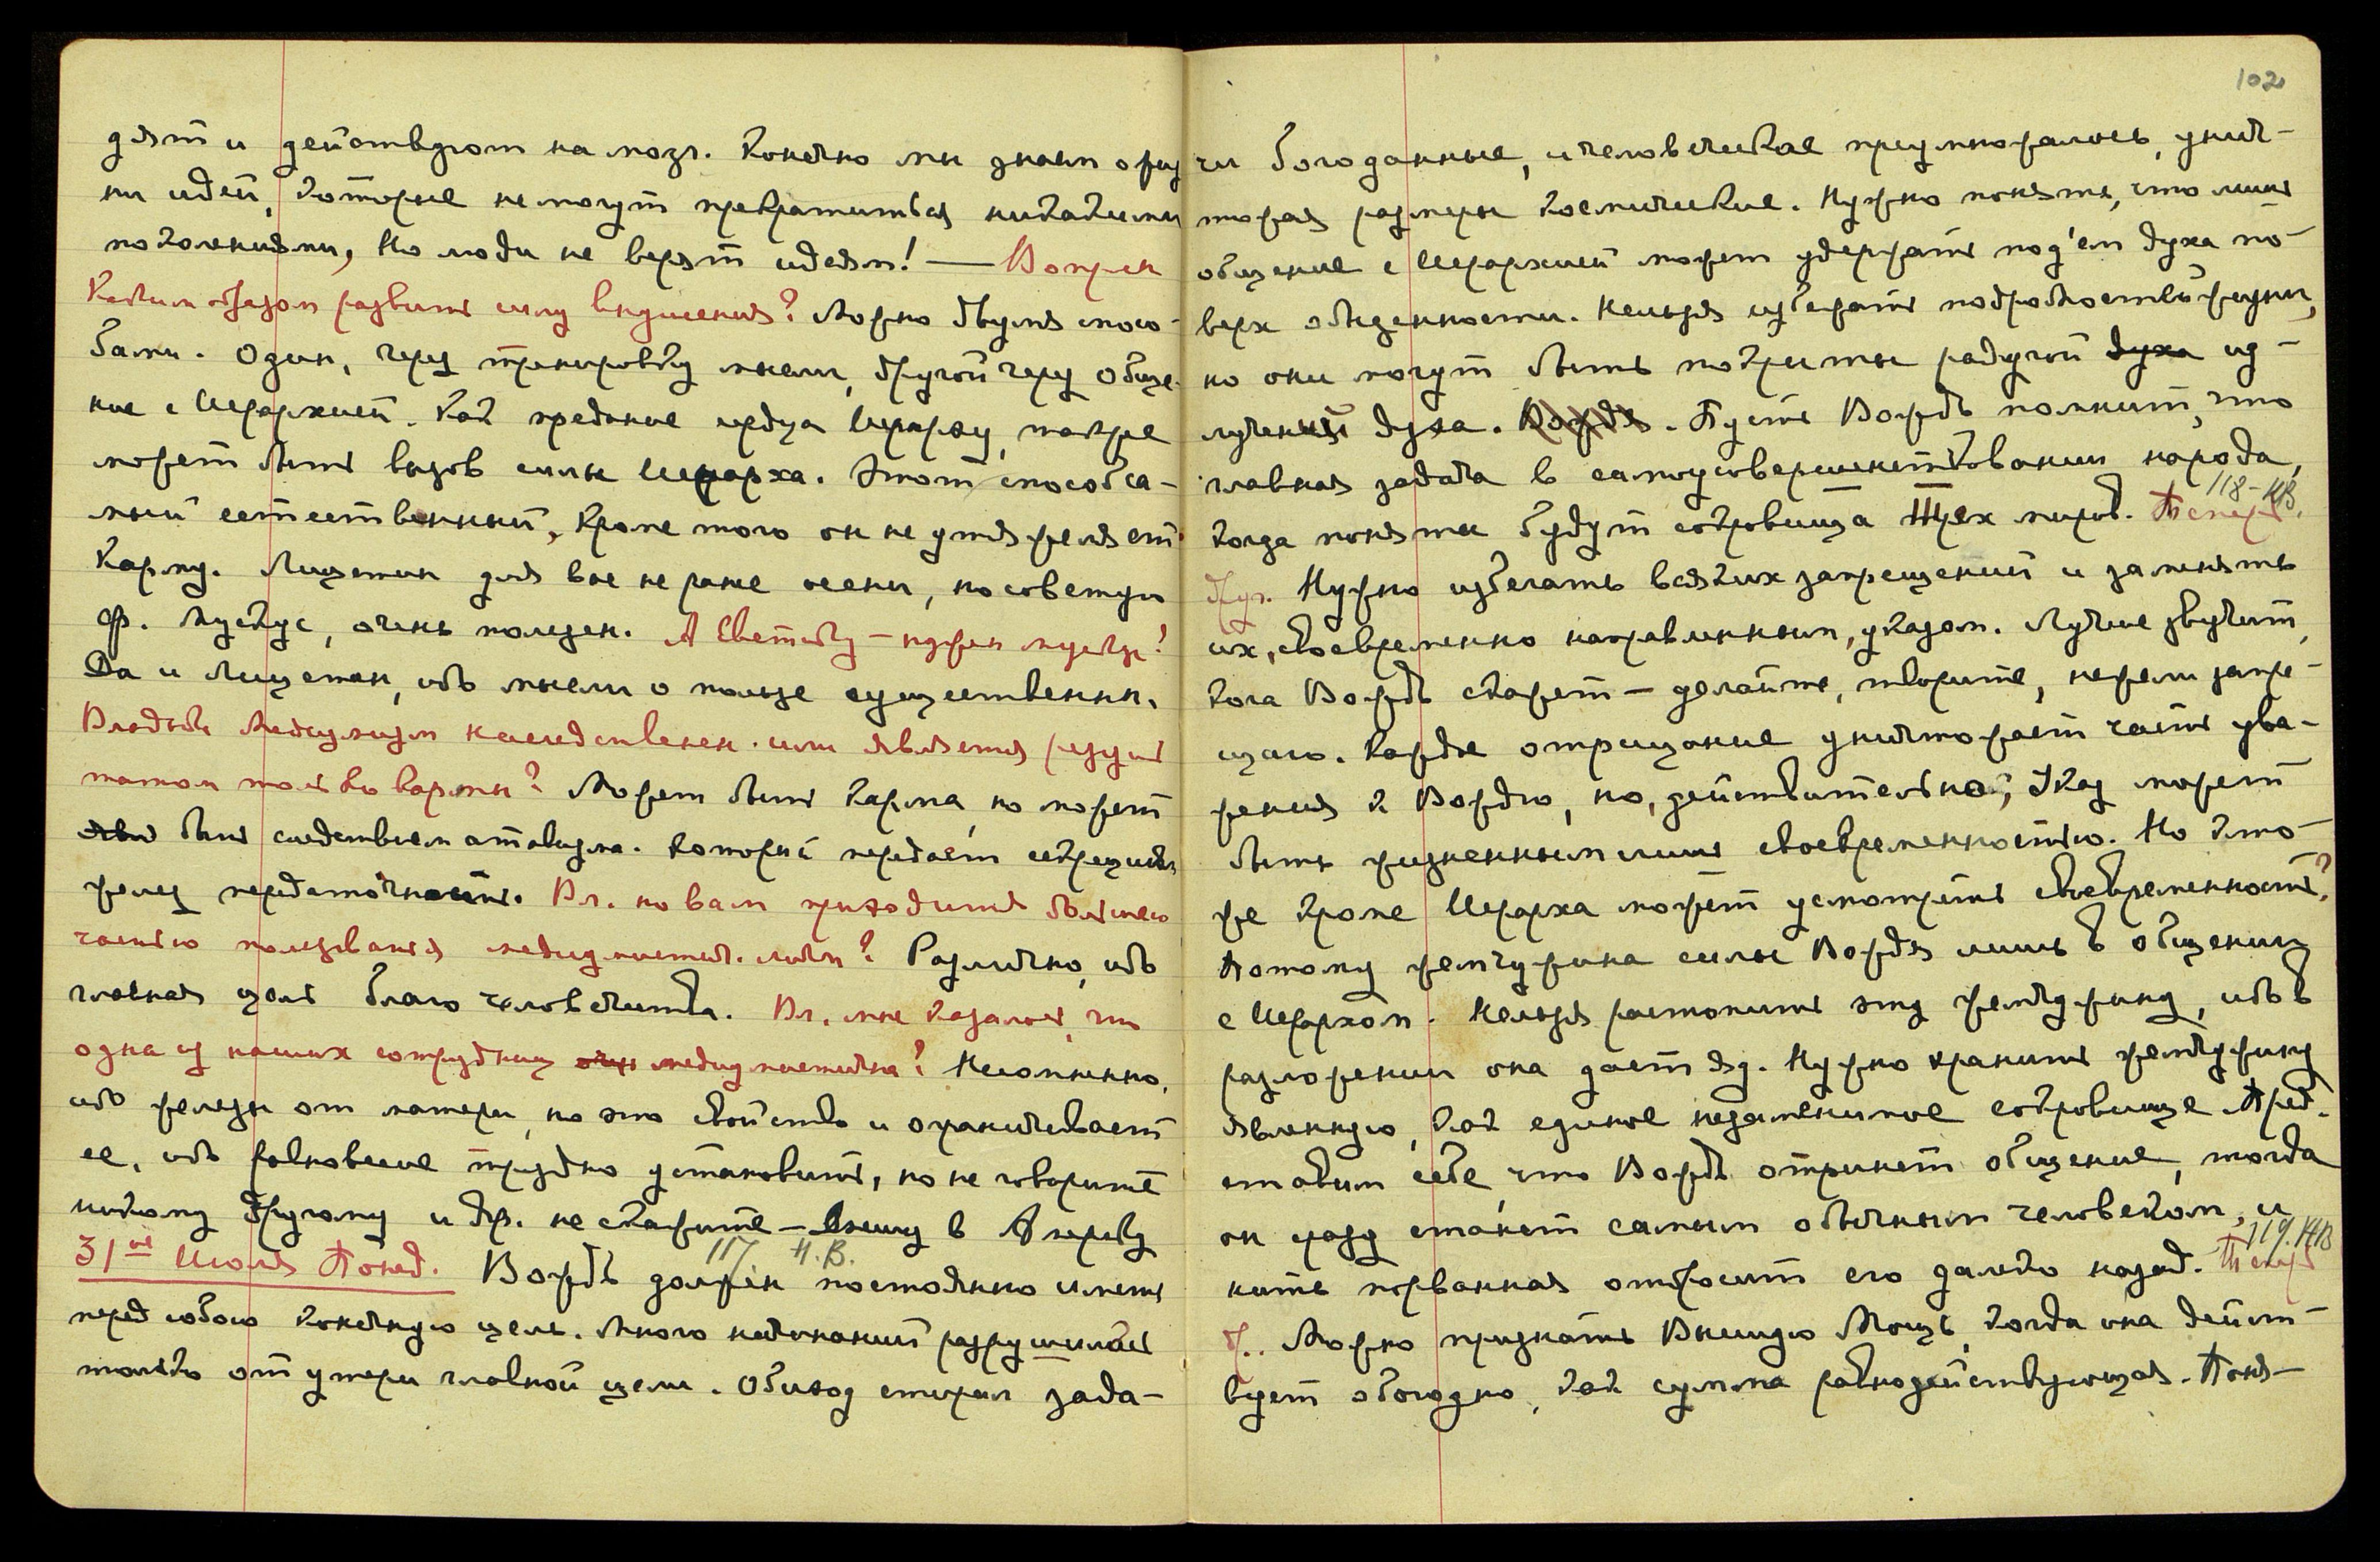 дят и действуют на мозг. Конечно мы знаем
ни идей, которые не могут прекратиться никакими
поколениями, Но люди не верят идеям! — Вопрен
Каким образом развить силу внушения? Можно двумя спосо-
бами. Один, через тренировку мысли, другой через обще-
ние с Иерархией. Как предание сердца Иерарху, также
может быть вызов силы Иерарха. Этот способ са-
мый естественный, Кроме того он не утяжеляет
Карму. Лицетин для вас не ранее осени, но советую
Ф. Мускус, очень полезен. А Светику – нужен мускус?
Да и Лицетин, ибо мысли о пользе существенны.
Владыка Медиумизм наследственен или является резуль
татом только кармы? Может быть карма, но может
быть следствием атавизма. Который передает секрециями
желез передаточность. Вл. но вам приходится большею
частью пользоваться медиумистич. ? Различно, ибо
главная цель благо человечества. Вл. мне казалось, что
одна из наших сотрудниц медиумистична? Несомненно,
ибо железы от матери, но это свойство и ограничивает
ее, ибо равновесие трудно установить, но не говорите
никому другому и др. не скажите – в Америку
31го Июля Понед. 117 Н.В. Вождь должен постоянно иметь
перед собою конечную цель. Много начинаний разрушилось
только от утери главной цели. Обиход стирал зада-
102
чи богоданные, и человеческое преумножалось, унич-
тожая размеры космические. Нужно понять, что лишь
общение с Иерархией может удержать под'ем духа по-
верх обыденности. Нельзя избежать подробностей жизни,
но они могут быть покрыты радугой духа из-
лучений духа. Вождя. Пусть Вождь помнит, что
главная задача в самоусовершенствовании народа,
когда поняты будут сокровища Трех миров. Теперь 118-НВ.
друг. Нужно избегать всяких запрещений и заменять
их, своевременно направленным, указом. Лучше звучит,
кога Вождь скажет – делайте, творите, нежели запре-
щаю. Каждое отрицание уничтожает часть ува-
жения к Вождю, но, действительно, Указ может
быть жизненным лишь своевременностью. Но кто-
же кроме Иерарха может усмотреть своевременность?
Потому жемчужина силы Вождя лишь в общении
с Иерархом. Нельзя растопить эту жемчужину, ибо в
разложении она дает яд. Нужно хранить жемчужину
явленную, как единое незаменимое сокровище. Пред-
ставим себе, что Вождь отринет общение, тогда
он сразу станет самым обычным человеком, и
нить порванная отбросит его далеко назад. Теперь 119.НВ
д.. Можно признать Внешнюю Мощь, когда она дейст-
вует обоюдно, как сумма равнодействующая. Поня-